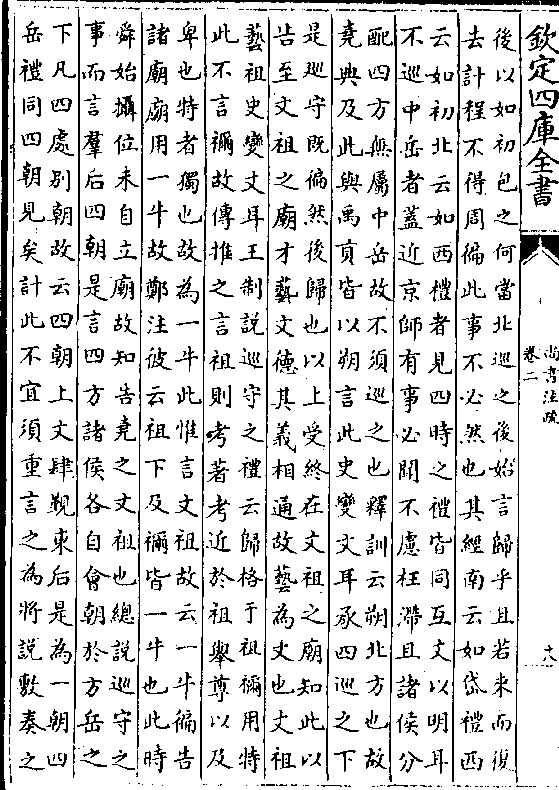 欽定四庫全書
尚書注疏
卷二
十八
後以如初包之何當北巡之後始言歸乎且若來而復
去計程不得周徧此事不必然也其經南云如岱禮西
云如初北云如西禮者見四時之禮皆同互文以明耳
不巡中岳者蓋近京師有事必聞不慮枉滯且諸侯分
配四方無屬中岳故不須巡之也釋訓云朔北方也故
堯典及此與禹貢皆以朔言此史變文耳承四巡之下
是巡守既徧然後歸也以上受終在文祖之廟知此以
告至文祖之廟才藝文德其義相通故藝為文也文祖
藝祖史變文耳王制說巡守之禮云歸格于祖禰用特
此不言禰故傳推之言祖則考著考近於祖舉尊以及
卑也特者獨也故為一牛此惟言文祖故云一牛徧告
諸廟廟用一牛故鄭注彼云祖下及禰皆一牛也此時
舜始攝位未自立廟故知告堯之文祖也總說巡守之
事而言羣后四朝是言四方諸侯各自會朝於方岳之
下凡四處別朝故云四朝上文肆覲東后是為一朝四
岳禮同四朝見矣計此不宜須重言之為將說敷奏之